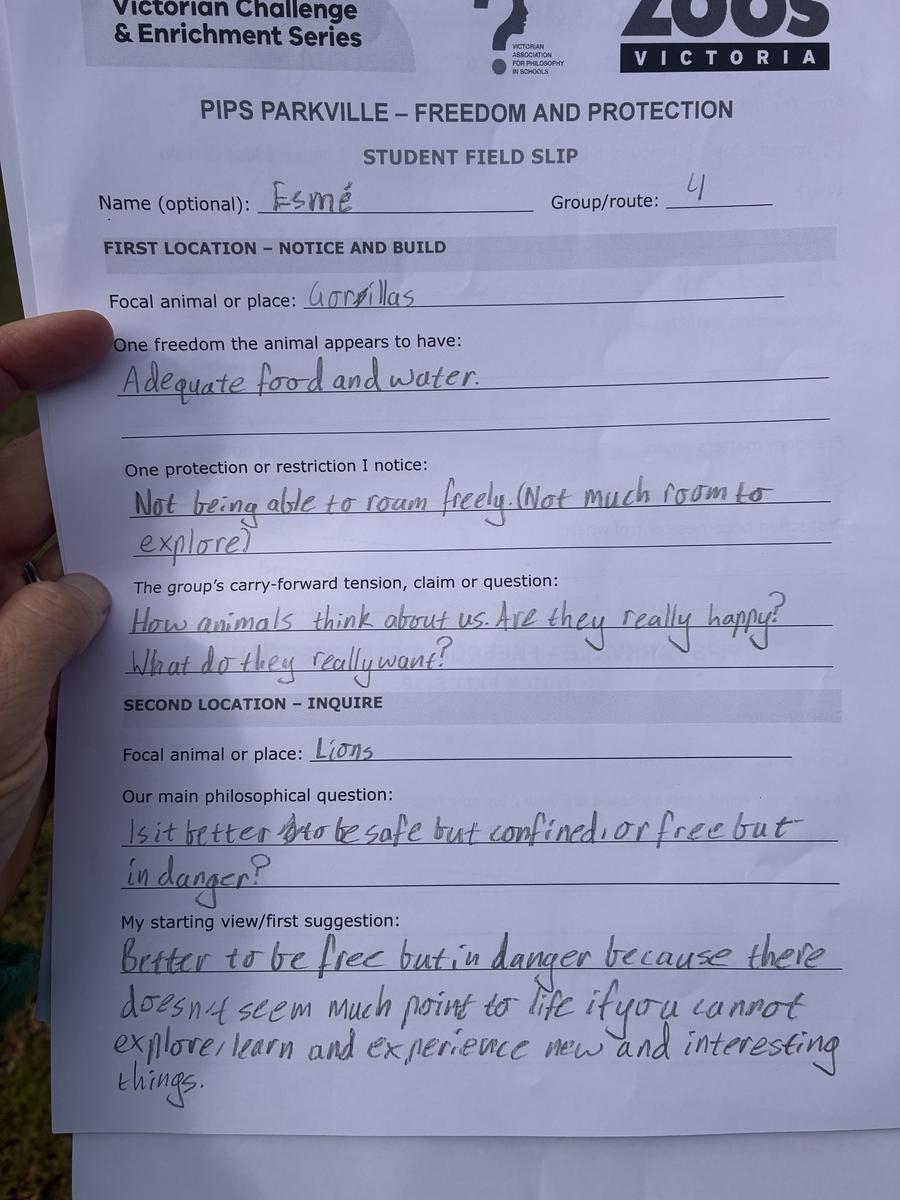 Victorian Challenge
& Enrichment Series
?
VICTORIAN
ASSOCIATION
FOR PHILOSOPHY
IN SCHOOLS
ZOOS
VICTORIA
PIPS PARKVILLE – FREEDOM AND PROTECTION
STUDENT FIELD SLIP
Name (optional): Esmé Group/route: 4
FIRST LOCATION – NOTICE AND BUILD
Focal animal or place: Gorillas
One freedom the animal appears to have:
Adequate food and water.
One protection or restriction I notice:
Not being able to roam freely. (Not much room to
explore)
The group's carry-forward tension, claim or question:
How animals think about us. Are they really happy?
What do they really want?
SECOND LOCATION – INQUIRE
Focal animal or place: Lions
Our main philosophical question:
Is it better to be safe but confined, or free but
in danger?
My starting view/first suggestion:
Better to be free but in danger because there
doesn't seem much point to life if you cannot
explore, learn and experience new and interesting
things.